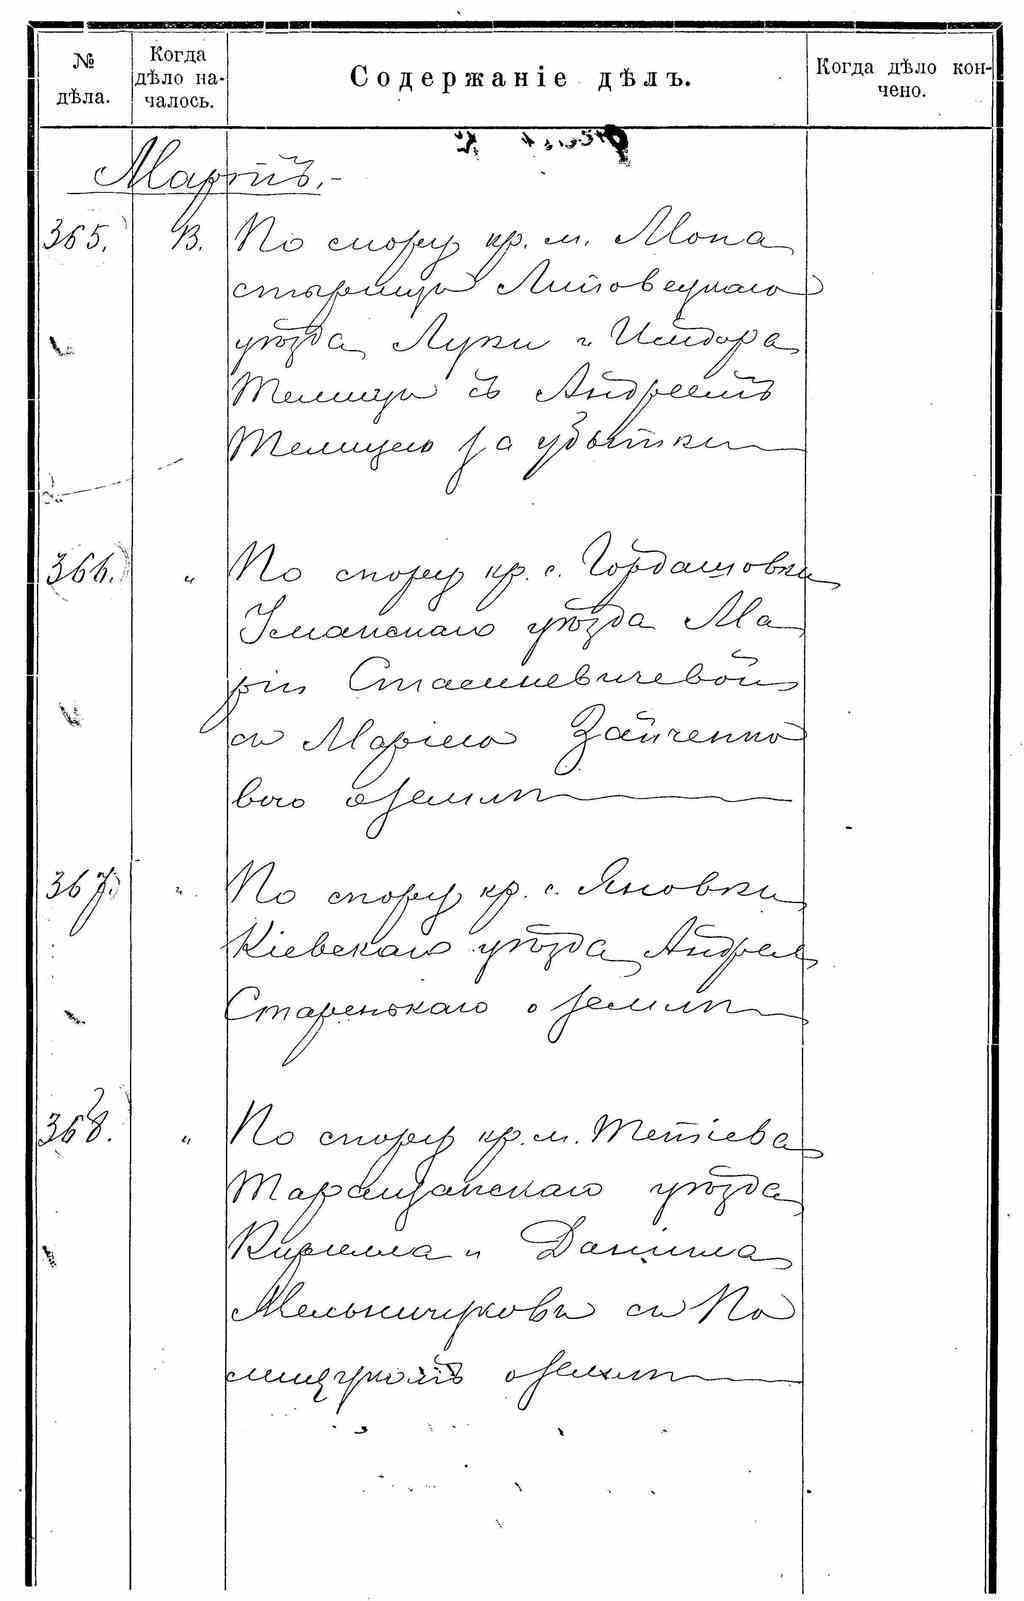 № дѣла.
Когда дѣло на-
чалось.
Содержаніе дѣлъ.
Когда дѣло кон-
чено.
Мартъ.
365. 13. По спору кр. м. Мона
стырища Липовецкаго
уѣзда Луки и Исидора
Телицы съ Андреемъ
Телицею за убытки
366. " По спору кр. с. Гордашовки
Уманскаго уѣзда Ма
ріи Стасиневичевой
съ Маріею Зайченко
вою о землѣ
367. " По спору кр. с. Яновки
Кіевскаго уѣзда Андрея
Старенькаго о землѣ
368. " По спору кр. м. Тетіева
Таращанскаго уѣзда
Кирилла и Даніила
Мельничуковъ съ По
лищукомъ о землѣ